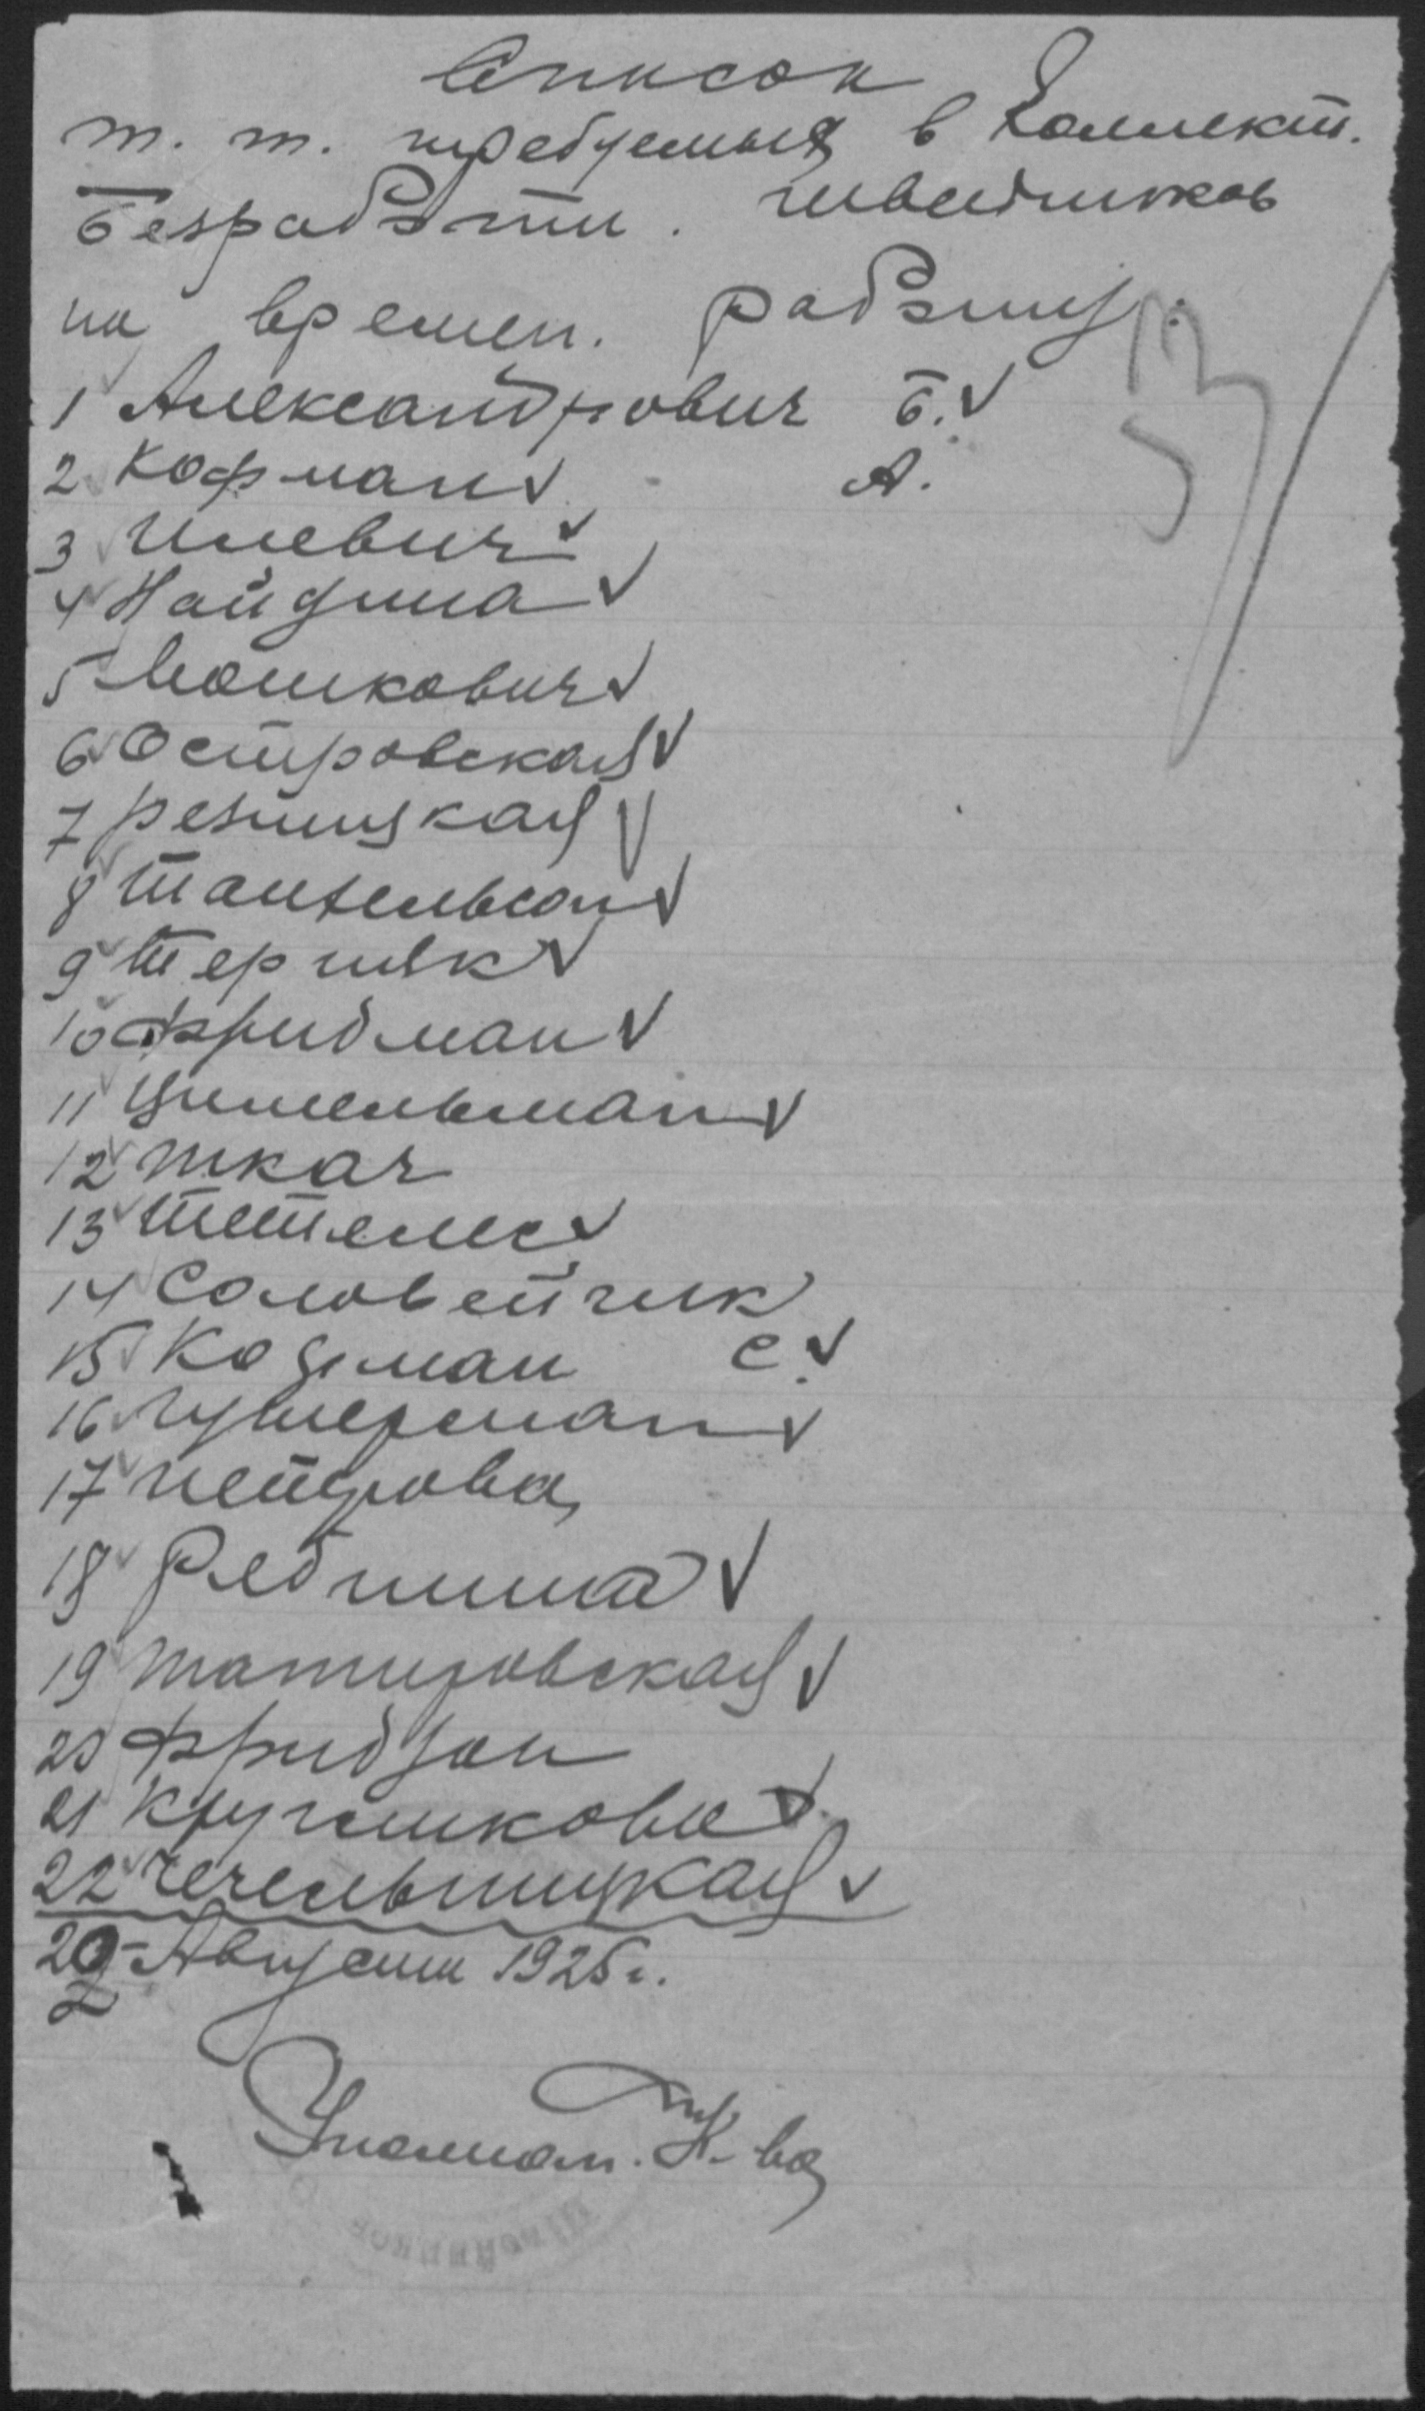 Список
т. т. требуемых в Коллект.
Безработн. швейников
на времен. работу.
1 Александрович Б.
2 Кофман А.
3 Илевич
4 Найдина
5 Мошкович
6 Островская
7 Резницкая
8 Тантельсон
9 Терняк
10 Фридман
11 Цимельман
12 Ткач
13 Тетелис
14 Соловейчик
15 Кофман С.
16 Гутерман
17 Петрова
18 Ребинина
19 Татировская
20 Фридзон
21 Кругликова
22 Чечельницкая
29 Августа 1925 г.
Уполном. К-ва